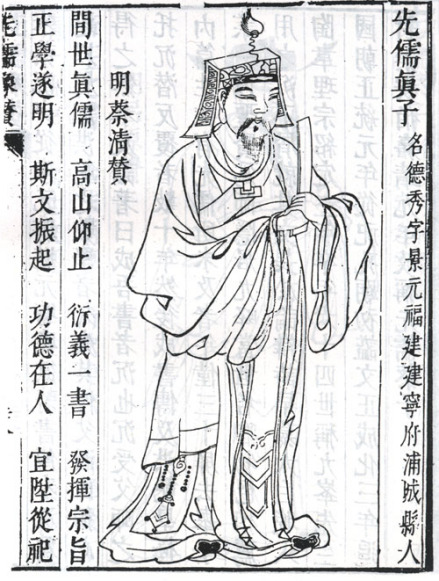 先儒眞子
名德秀字景元福建建寧府浦城縣人
明蔡清贊
間世眞儒 高山仰止 衍義一書 發揮宗旨
正學遂明 斯文振起 功德在人 宜陞從祀
先儒像贊